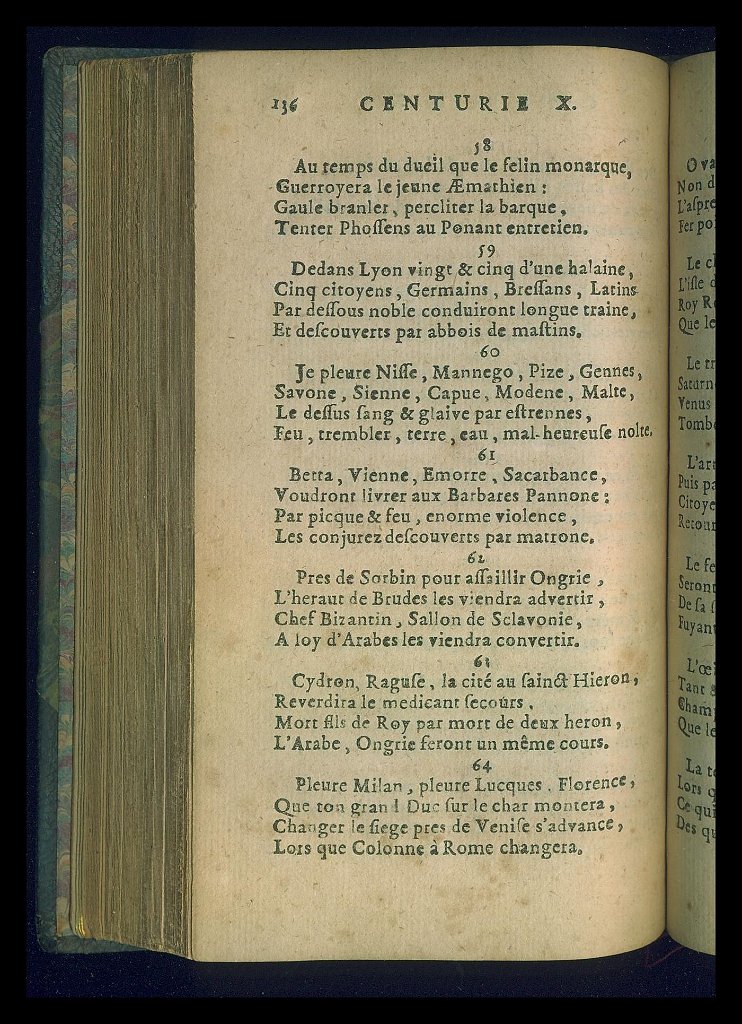 136 CENTURIE X.
58
Au temps du dueil que le felin monarque,
Guerroyera le jeune Æmathien :
Gaule branler, percliter la barque,
Tenter Phoſſens au Ponant entretien.
59
Dedans Lyon vingt & cinq d'une halaine,
Cinq citoyens, Germains, Breſſans, Latins
Par deſſous noble conduiront longue traine,
Et deſcouverts par abbois de maſtins.
60
Je pleure Niſſe, Mannego, Pize, Gennes,
Savone, Sienne, Capue, Modene, Malte,
Le deſſus ſang & glaive par eſtrennes,
Feu, trembler, terre, eau, mal-heureuſe nolte.
61
Betta, Vienne, Emorre, Sacarbance,
Voudront livrer aux Barbares Pannone :
Par picque & feu, enorme violence,
Les conjurez deſcouverts par matrone.
62
Pres de Sorbin pour aſſaillir Ongrie,
L'heraut de Brudes les viendra advertir,
Chef Bizantin, Sallon de Sclavonie,
A loy d'Arabes les viendra convertir.
63
Cydron, Raguſe, la cité au ſainct Hieron,
Reverdira le medicant ſecours.
Mort fils de Roy par mort de deux heron,
L'Arabe, Ongrie feront un même cours.
64
Pleure Milan, pleure Lucques, Florence,
Que ton grand Duc ſur le char montera,
Changer le ſiege pres de Veniſe s'advance,
Lors que Colonne à Rome changera.
O va
Non d
L'aſpre
Fer po
Le c
L'iſle d
Roy R
Que le
Le tr
Saturn
Venus
Tomb
L'ar
Puis pa
Citoye
Retour
Le fe
Seront
De ſa
Fuyant
L'œ
Tant
Cham
Que le
La t
Lors q
Ce qui
Des qu